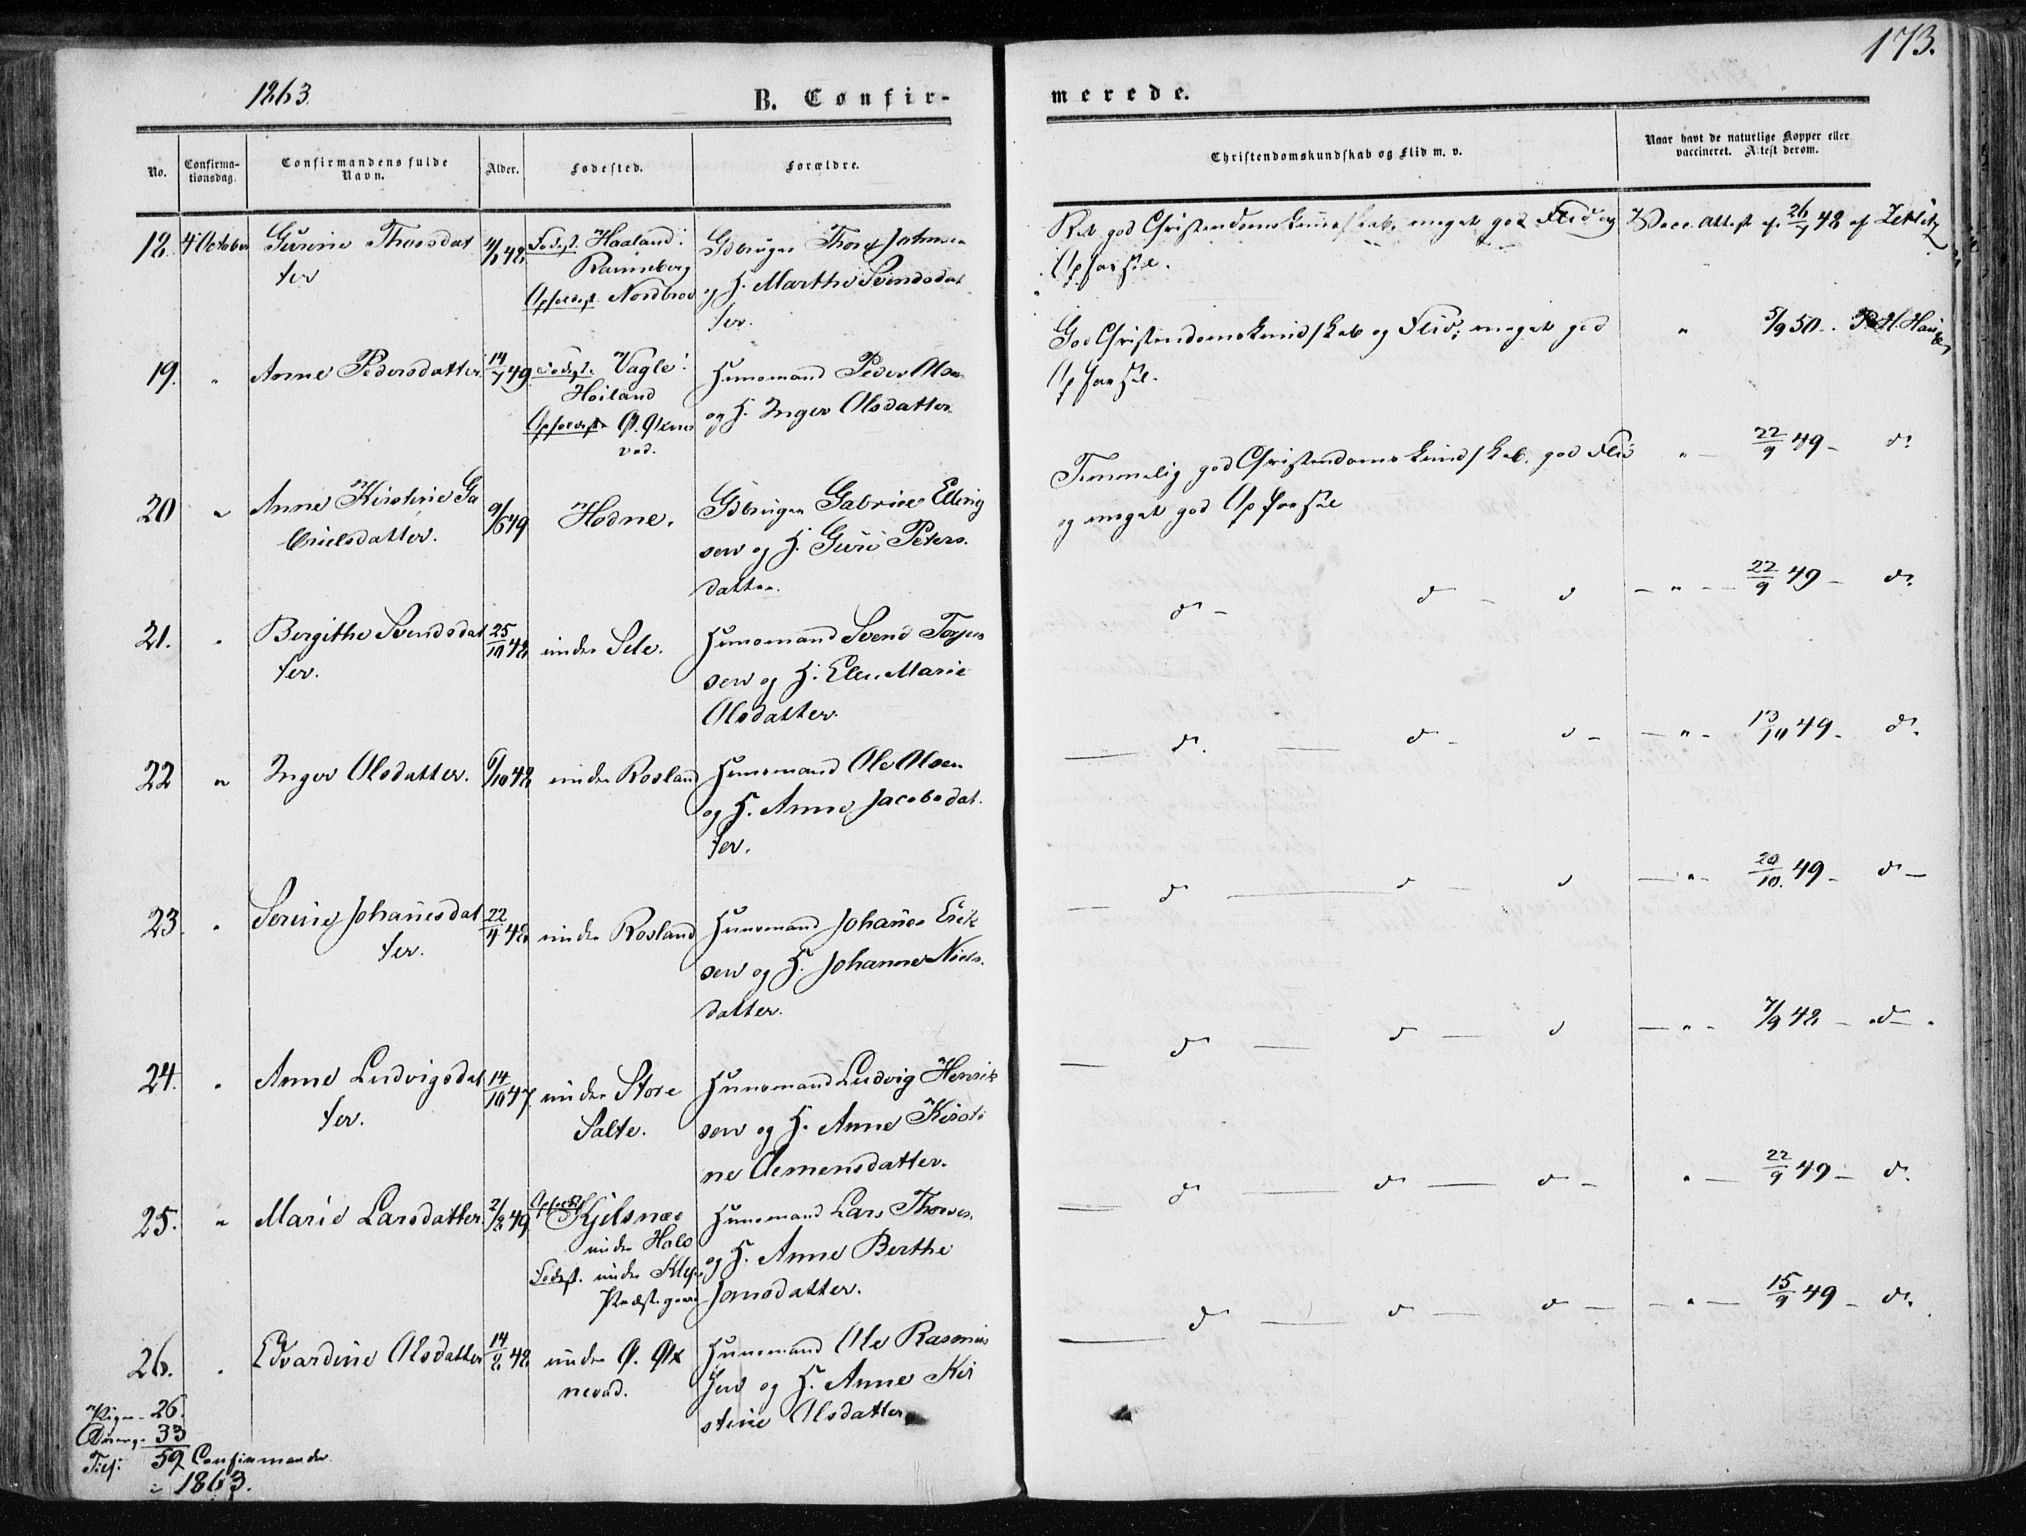 173.
1863.
B. Confir-
merede.
No.
Confirma-
tionsdag.
Confirmandens fulde
Navn.
Alder.
Fødested.
Forældre.
Christendomskundskab og Flid m. v.
Naar havt de naturlige Kopper eller
vaccineret. Attest derom.
18. 4 October Gurine Thorsdat
ter
Fødest. Haaland:
Ranneberg
Opholdst. Nordbroe
Gdbruger Thor Johnsen
og H. Marthe Svendsdat
ter.
Ret god Christendomskundskab, meget god Flid og
Opførsel.
Vacc. Attest af 26/7 48 af Zetlitz
19. " Anne Pedersdatter. 14/7 49.
Fødest. Vagle:
Høiland
Opholdst. Ø. Øxne
vad.
Huusmand Peder Olsen
og H. Inger Olsdatter.
God Christendomskundskab og Flid; meget god
Opførsel.
" 5/9 50.
20 " Anne Kirstine Ga
brielsdatter. 9/6 49 Hodne.
Gdbruger Gabriel Elling
sen og H. Guri Peters-
datter.
Temmelig god Christendomskundskab, god Flid
og meget god Opførsel
" 22/9 49 - do
21. " Bergithe Svendsdat
ter. 25/10 48 under Sele.
Huusmand Svend Torjus
sen og H. Elen Marie
Olsdatter.
do - d - d - " - 22/9 49 - do
22 " Inger Olsdatter. 6/10 48 under Rosland
Huusmand Ole Olsen
og H. Anne Jacobsdat-
ter.
do. - do - d - " - 13/10 49 - do
23. " Serine Johanesdat
ter. 22/11 48 under Rosland
Huusmand Johanes Erik
sen og H. Johanne Niels-
datter.
do - d - d - " - 20/10. 49 - do -
24. " Anne Ludvigsdat
ter. 14/10 47. under Store
Salte.
Huusmand Ludvig Henrik
sen og H. Anne Kirsti
ne Clemensdatter.
do - d - d - " - 7/9 48 - do -
25. " Marie Larsdatter. 2/2 49
Opholdst. Kjelsnæs
under Hals
Fødest. under Klep
Præstegaard
Huusmand Lars Thores.
og H. Anne Berthe
Jonsdatter.
do - do - do - " - 22/9 49 - do
26. " Edvardine Olsdatter 14/8 48 under Ø. Øx
nevad.
Huusmand Ole Rasmus
sen og H. Anne Kir
stine Olsdatter
do - do - do - " - 15/9 49 - do
Piger - 26.
Drenge 33
Tils: 59 Confirmander
i 1863.